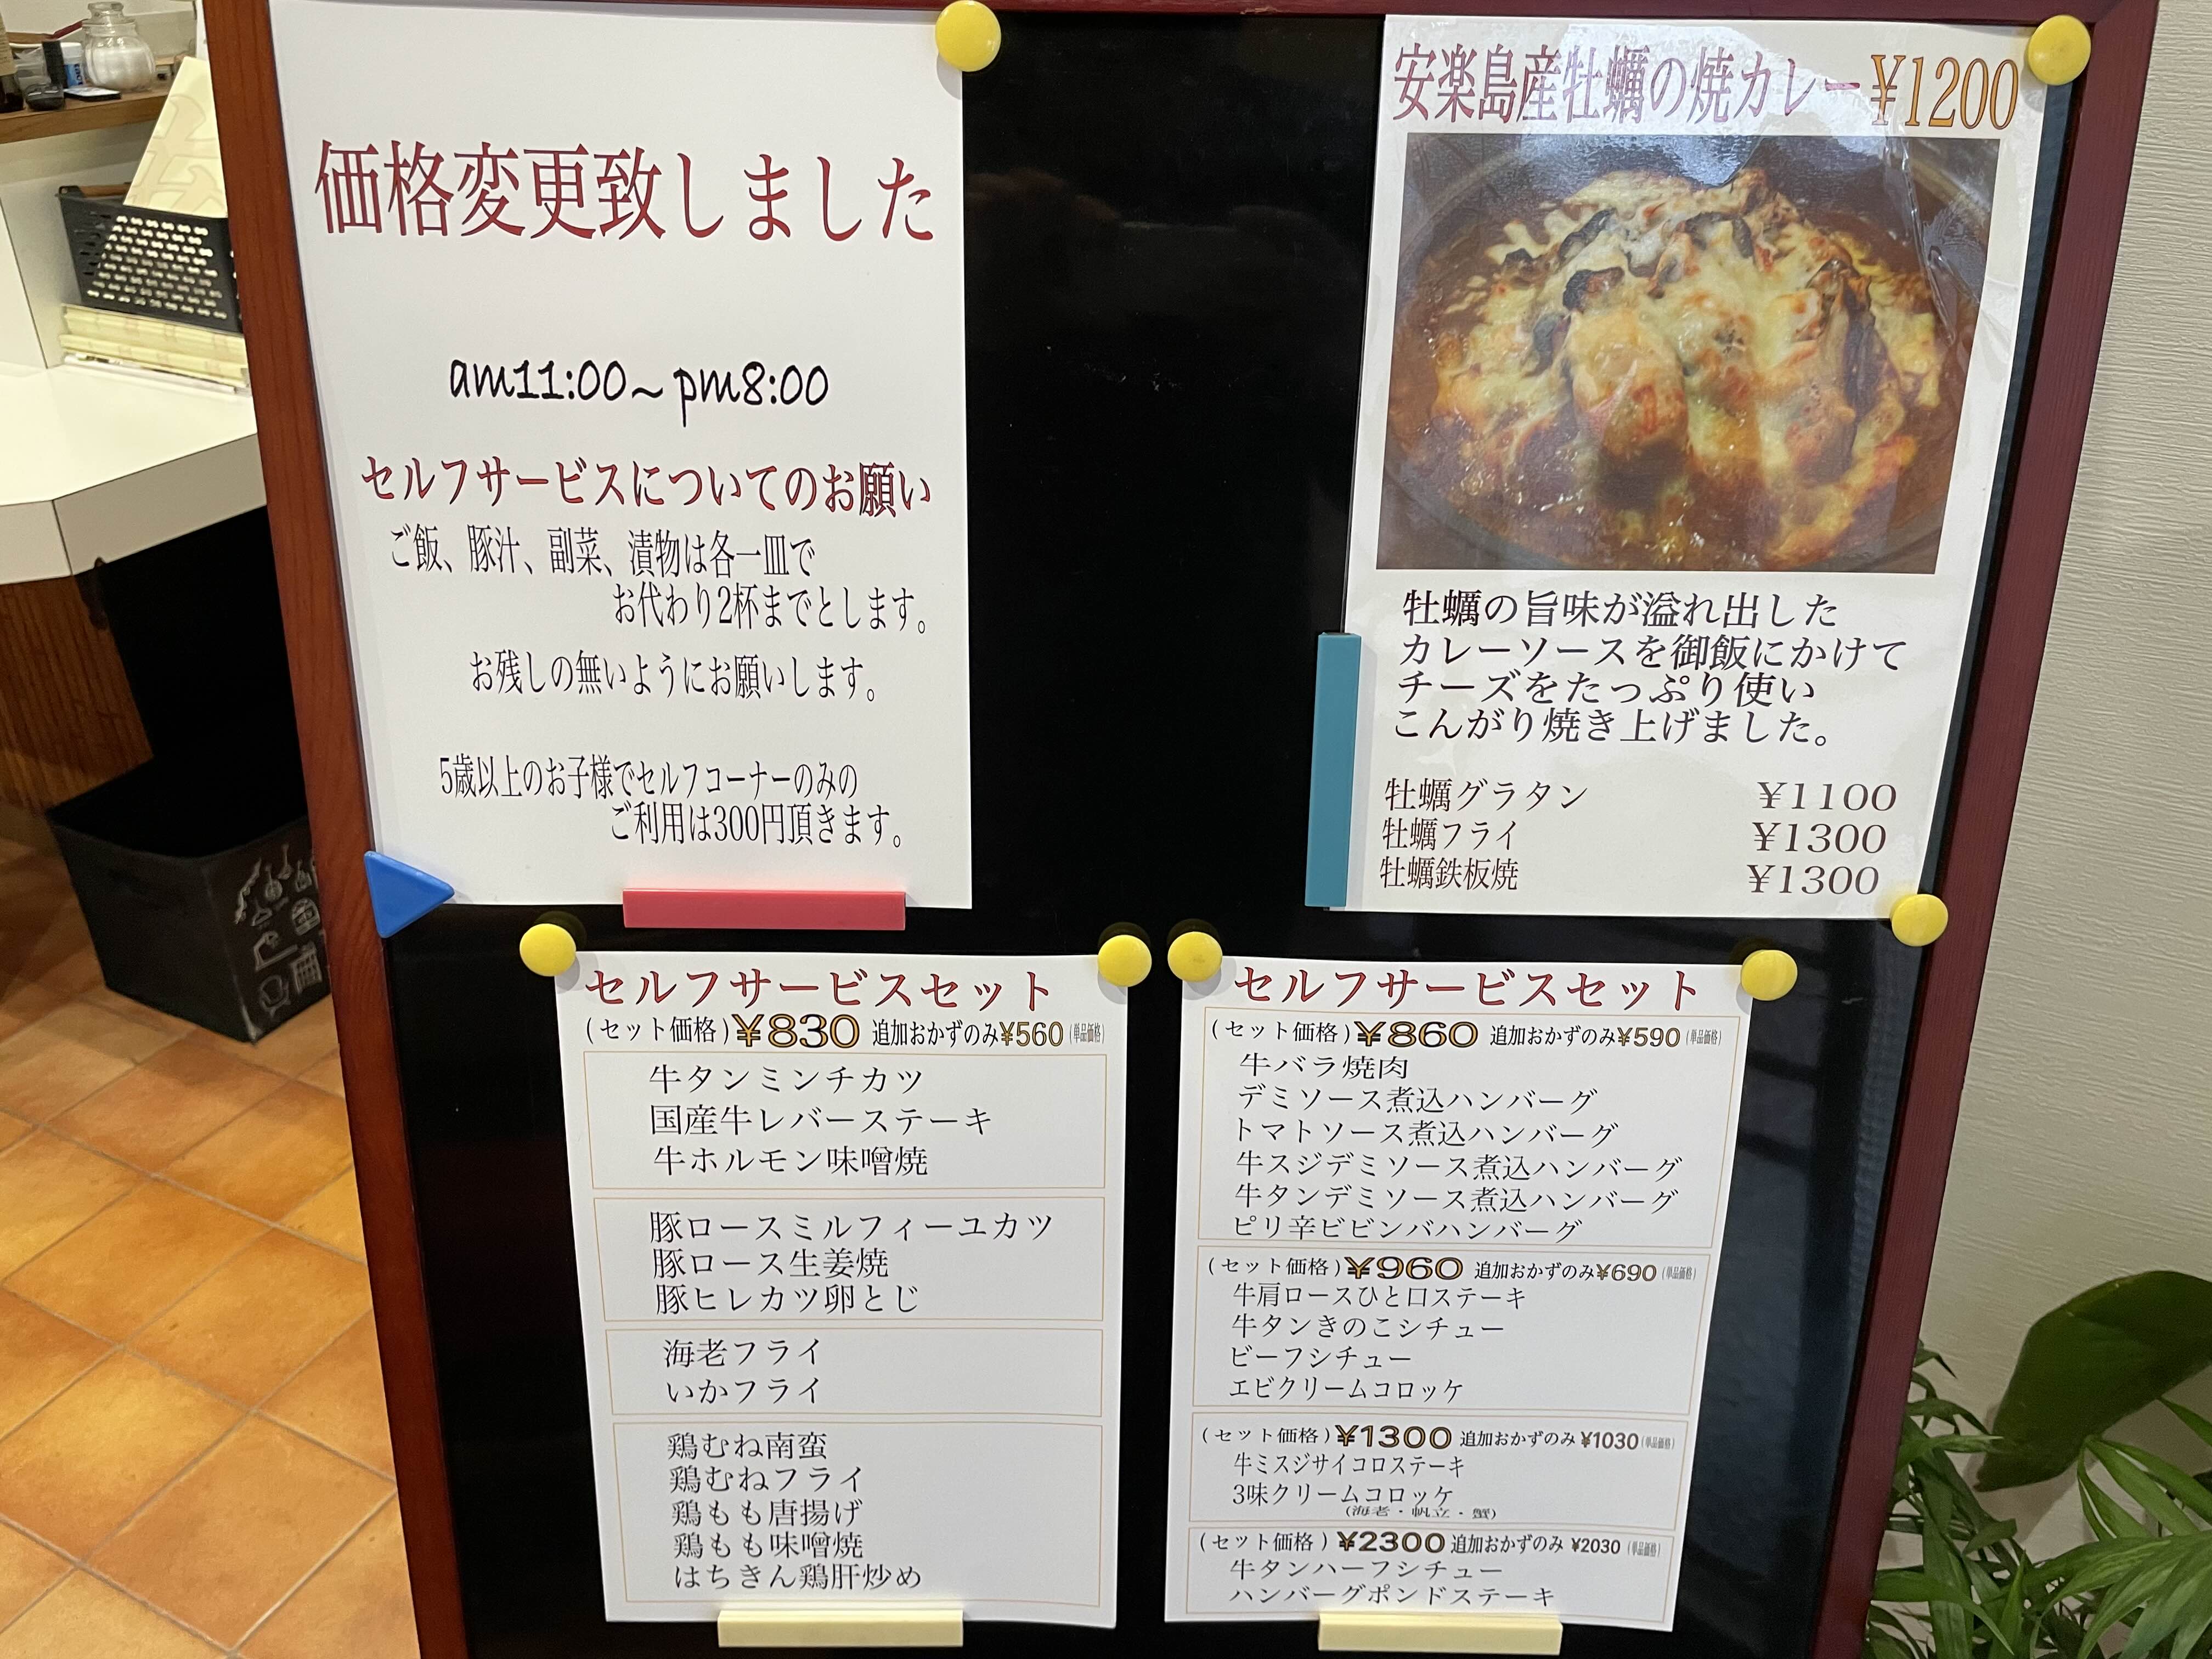 価格変更致しました
am11:00~pm8:00
セルフサービスについてのお願い
ご飯、豚汁、副菜、漬物は各一皿で
お代わり2杯までとします。
お残しの無いようにお願いします。
5歳以上のお子様でセルフコーナーのみの
ご利用は300円頂きます。
安楽島産牡蠣の焼カレー¥1200
牡蠣の旨味が溢れ出した
カレーソースを御飯にかけて
チーズをたっぷり使い
こんがり焼き上げました。
牡蠣グラタン ¥1100
牡蠣フライ ¥1300
牡蠣鉄板焼 ¥1300
セルフサービスセット
(セット価格)¥830 追加おかずのみ¥560(単品価格)
牛タンミンチカツ
国産牛レバーステーキ
牛ホルモン味噌焼
豚ロースミルフィーユカツ
豚ロース生姜焼
豚ヒレカツ卵とじ
海老フライ
いかフライ
鶏むね南蛮
鶏むねフライ
鶏もも唐揚げ
鶏もも味噌焼
はちきん鶏肝炒め
セルフサービスセット
(セット価格)¥860 追加おかずのみ¥590(単品価格)
牛バラ焼肉
デミソース煮込ハンバーグ
トマトソース煮込ハンバーグ
牛スジデミソース煮込ハンバーグ
牛タンデミソース煮込ハンバーグ
ピリ辛ビビンバハンバーグ
(セット価格)¥960 追加おかずのみ¥690(単品価格)
牛肩ロースひと口ステーキ
牛タンきのこシチュー
ビーフシチュー
エビクリームコロッケ
(セット価格)¥1300 追加おかずのみ¥1030(単品価格)
牛ミスジサイコロステーキ
3味クリームコロッケ
(海老・帆立・蟹)
(セット価格)¥2300 追加おかずのみ ¥2030(単品価格)
牛タンハーフシチュー
ハンバーグポンドステーキ